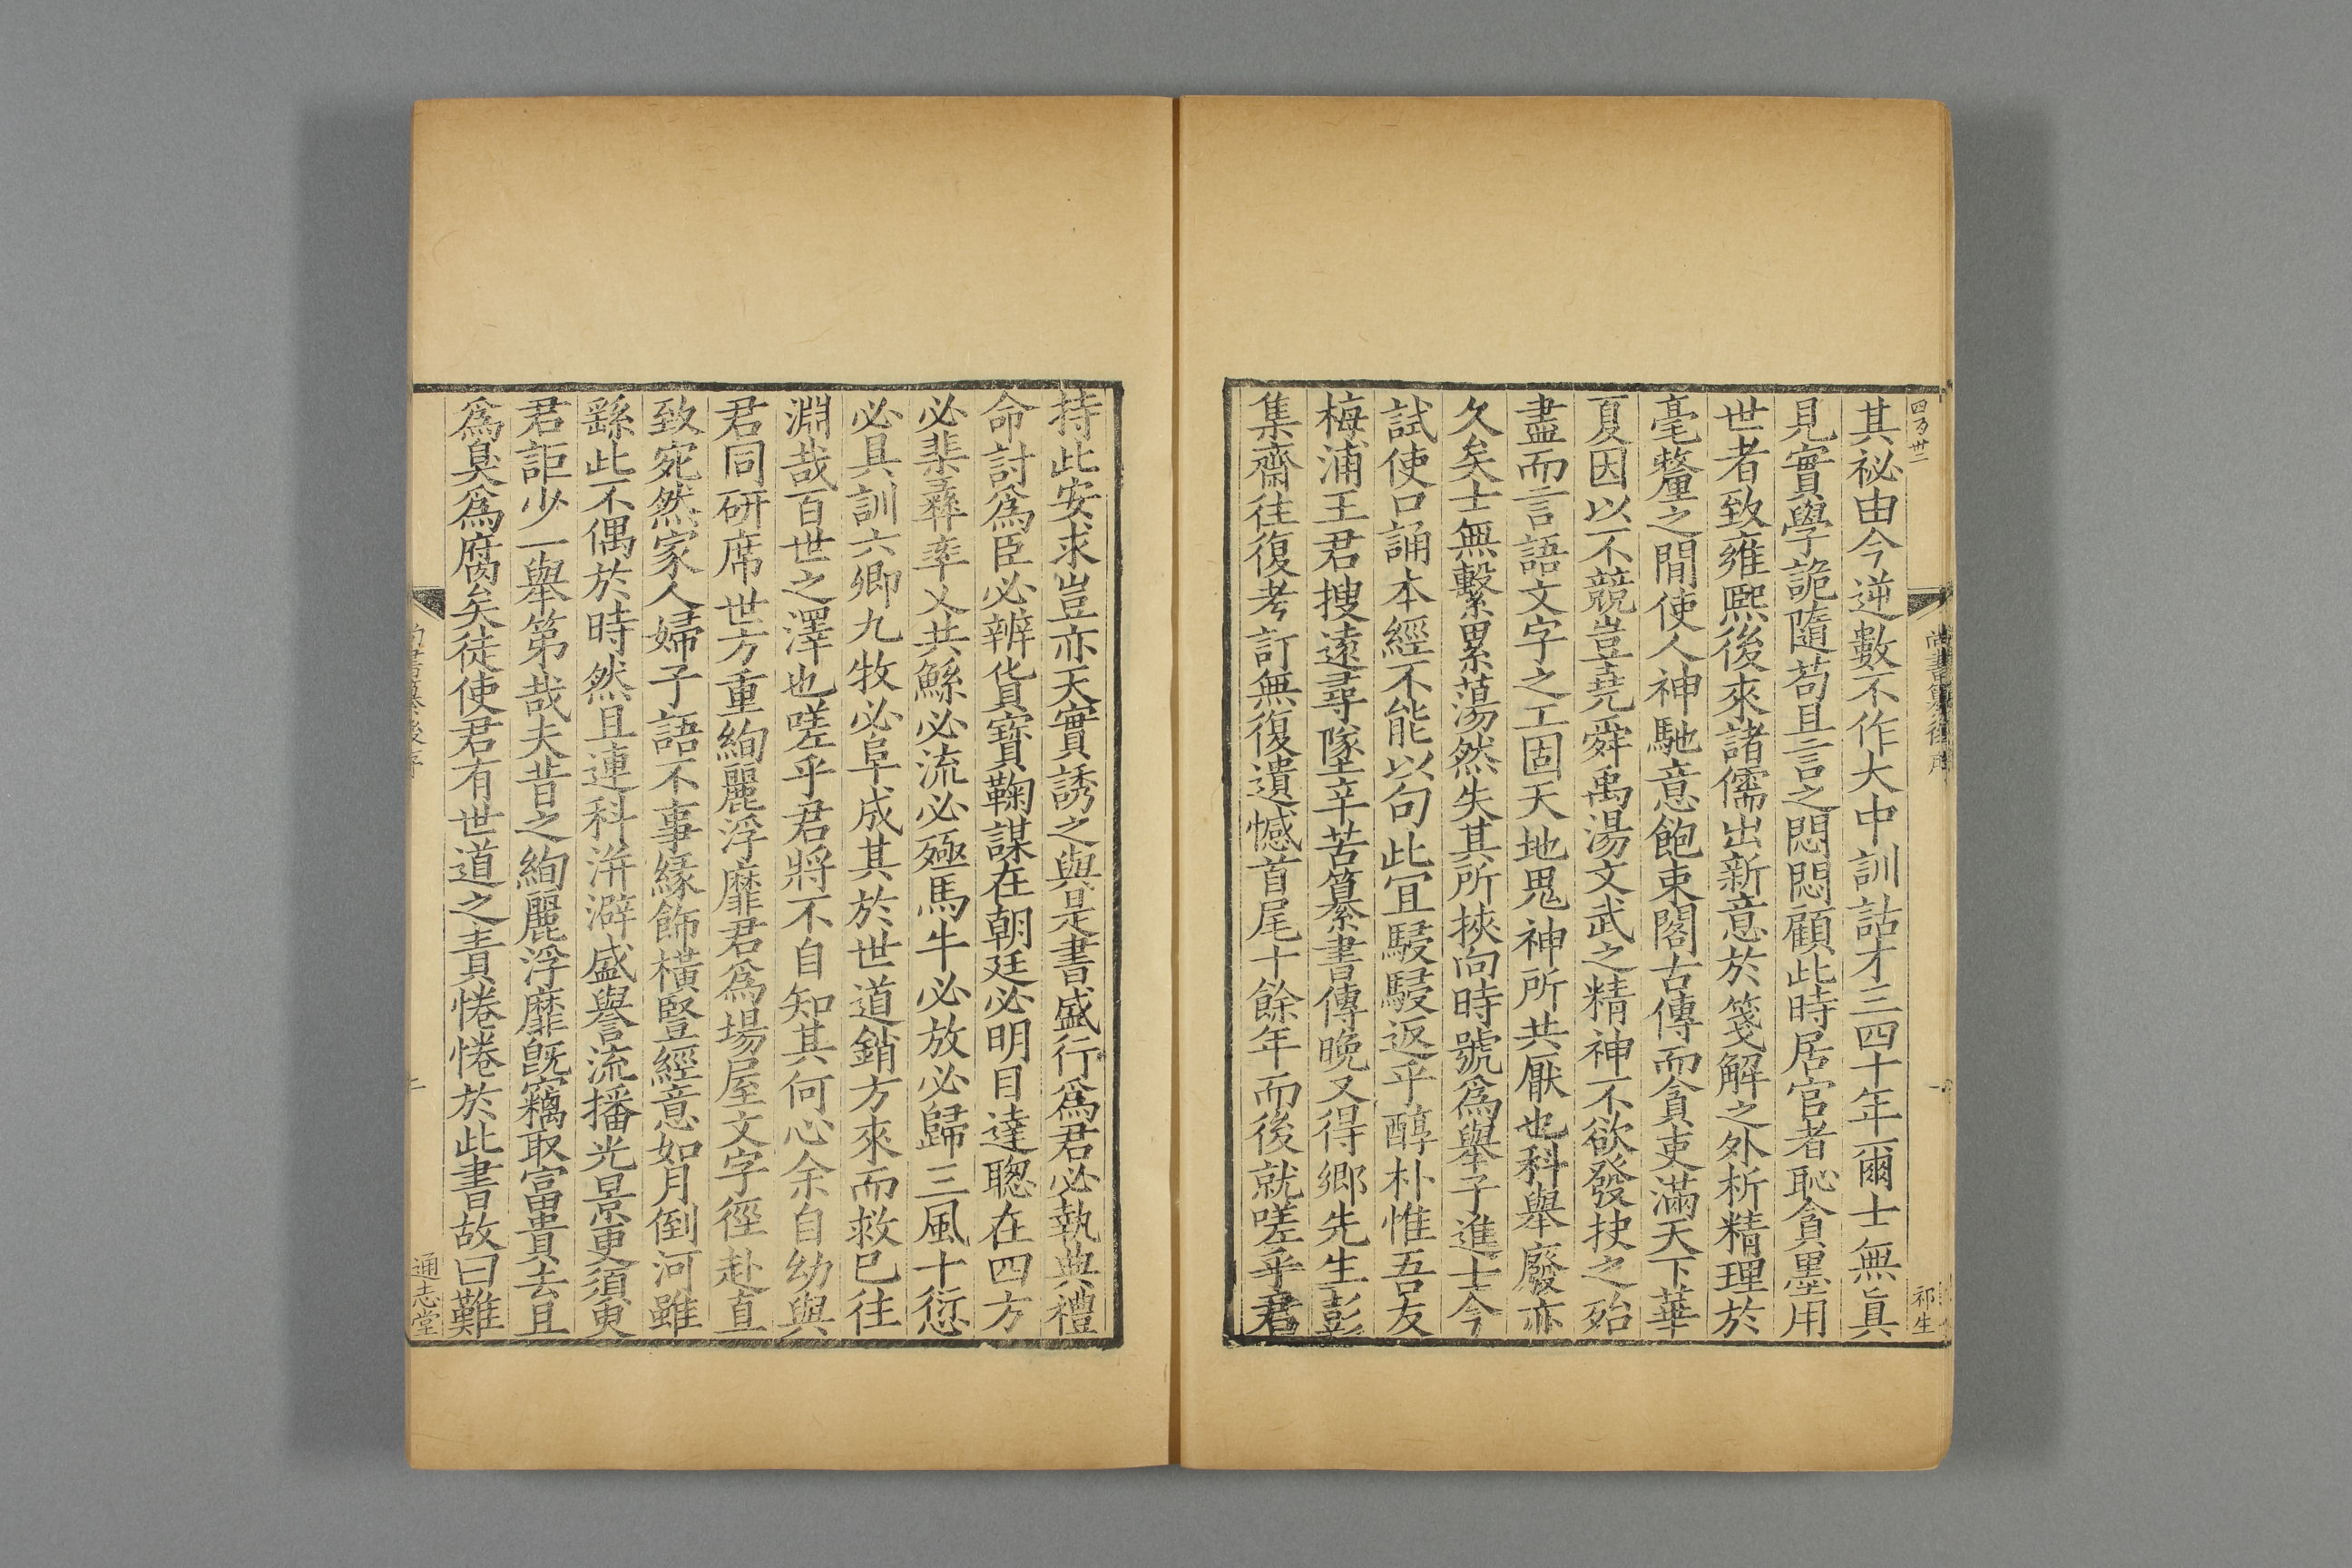 四百卅二
尚書纂後序
祁生
其祕由今逆數不作大中訓詁才三四十年爾士無眞
見實學詭隨苟且言之悶悶顧此時居官者恥貪墨用
世者致雍熙後來諸儒出新意於箋解之外析精理於
毫釐之間使人神馳意飽束閣古傳而貪吏滿天下華
夏因以不競豈堯舜禹湯文武之精神不欲發抉之殆
盡而言語文字之工固天地鬼神所共厭也科舉廢亦
久矣士無繫累蕩然失其所挾向時號爲舉子進士今
試使口誦本經不能以句此宜駸駸返乎醇朴惟吾友
梅浦王君搜遠尋墜辛苦纂書傳晚又得鄉先生彭
集齋往復考訂無復遺憾首尾十餘年而後就嗟乎君
持此安求豈亦天實誘之與是書盛行爲君必執典禮
命討爲臣必辨貨寶鞠謀在朝廷必明目達聰在四方
必棐彝率乂共鯀必流必殛馬牛必放必歸三風十愆
必具訓六卿九牧必阜成其於世道銷方來而救已往
淵哉百世之澤也嗟乎君將不自知其何心余自幼與
君同研席世方重絢麗浮靡君爲場屋文字徑赴直
致宛然家人婦子語不事緣飾橫豎經意如月倒河雖
繇此不偶於時然且連科洴澼盛譽流播光景更須臾
君詎少一舉第哉夫昔之絢麗浮靡旣竊取富貴去且
爲臭爲腐矣徒使君有世道之責惓惓於此書故曰難
通志堂